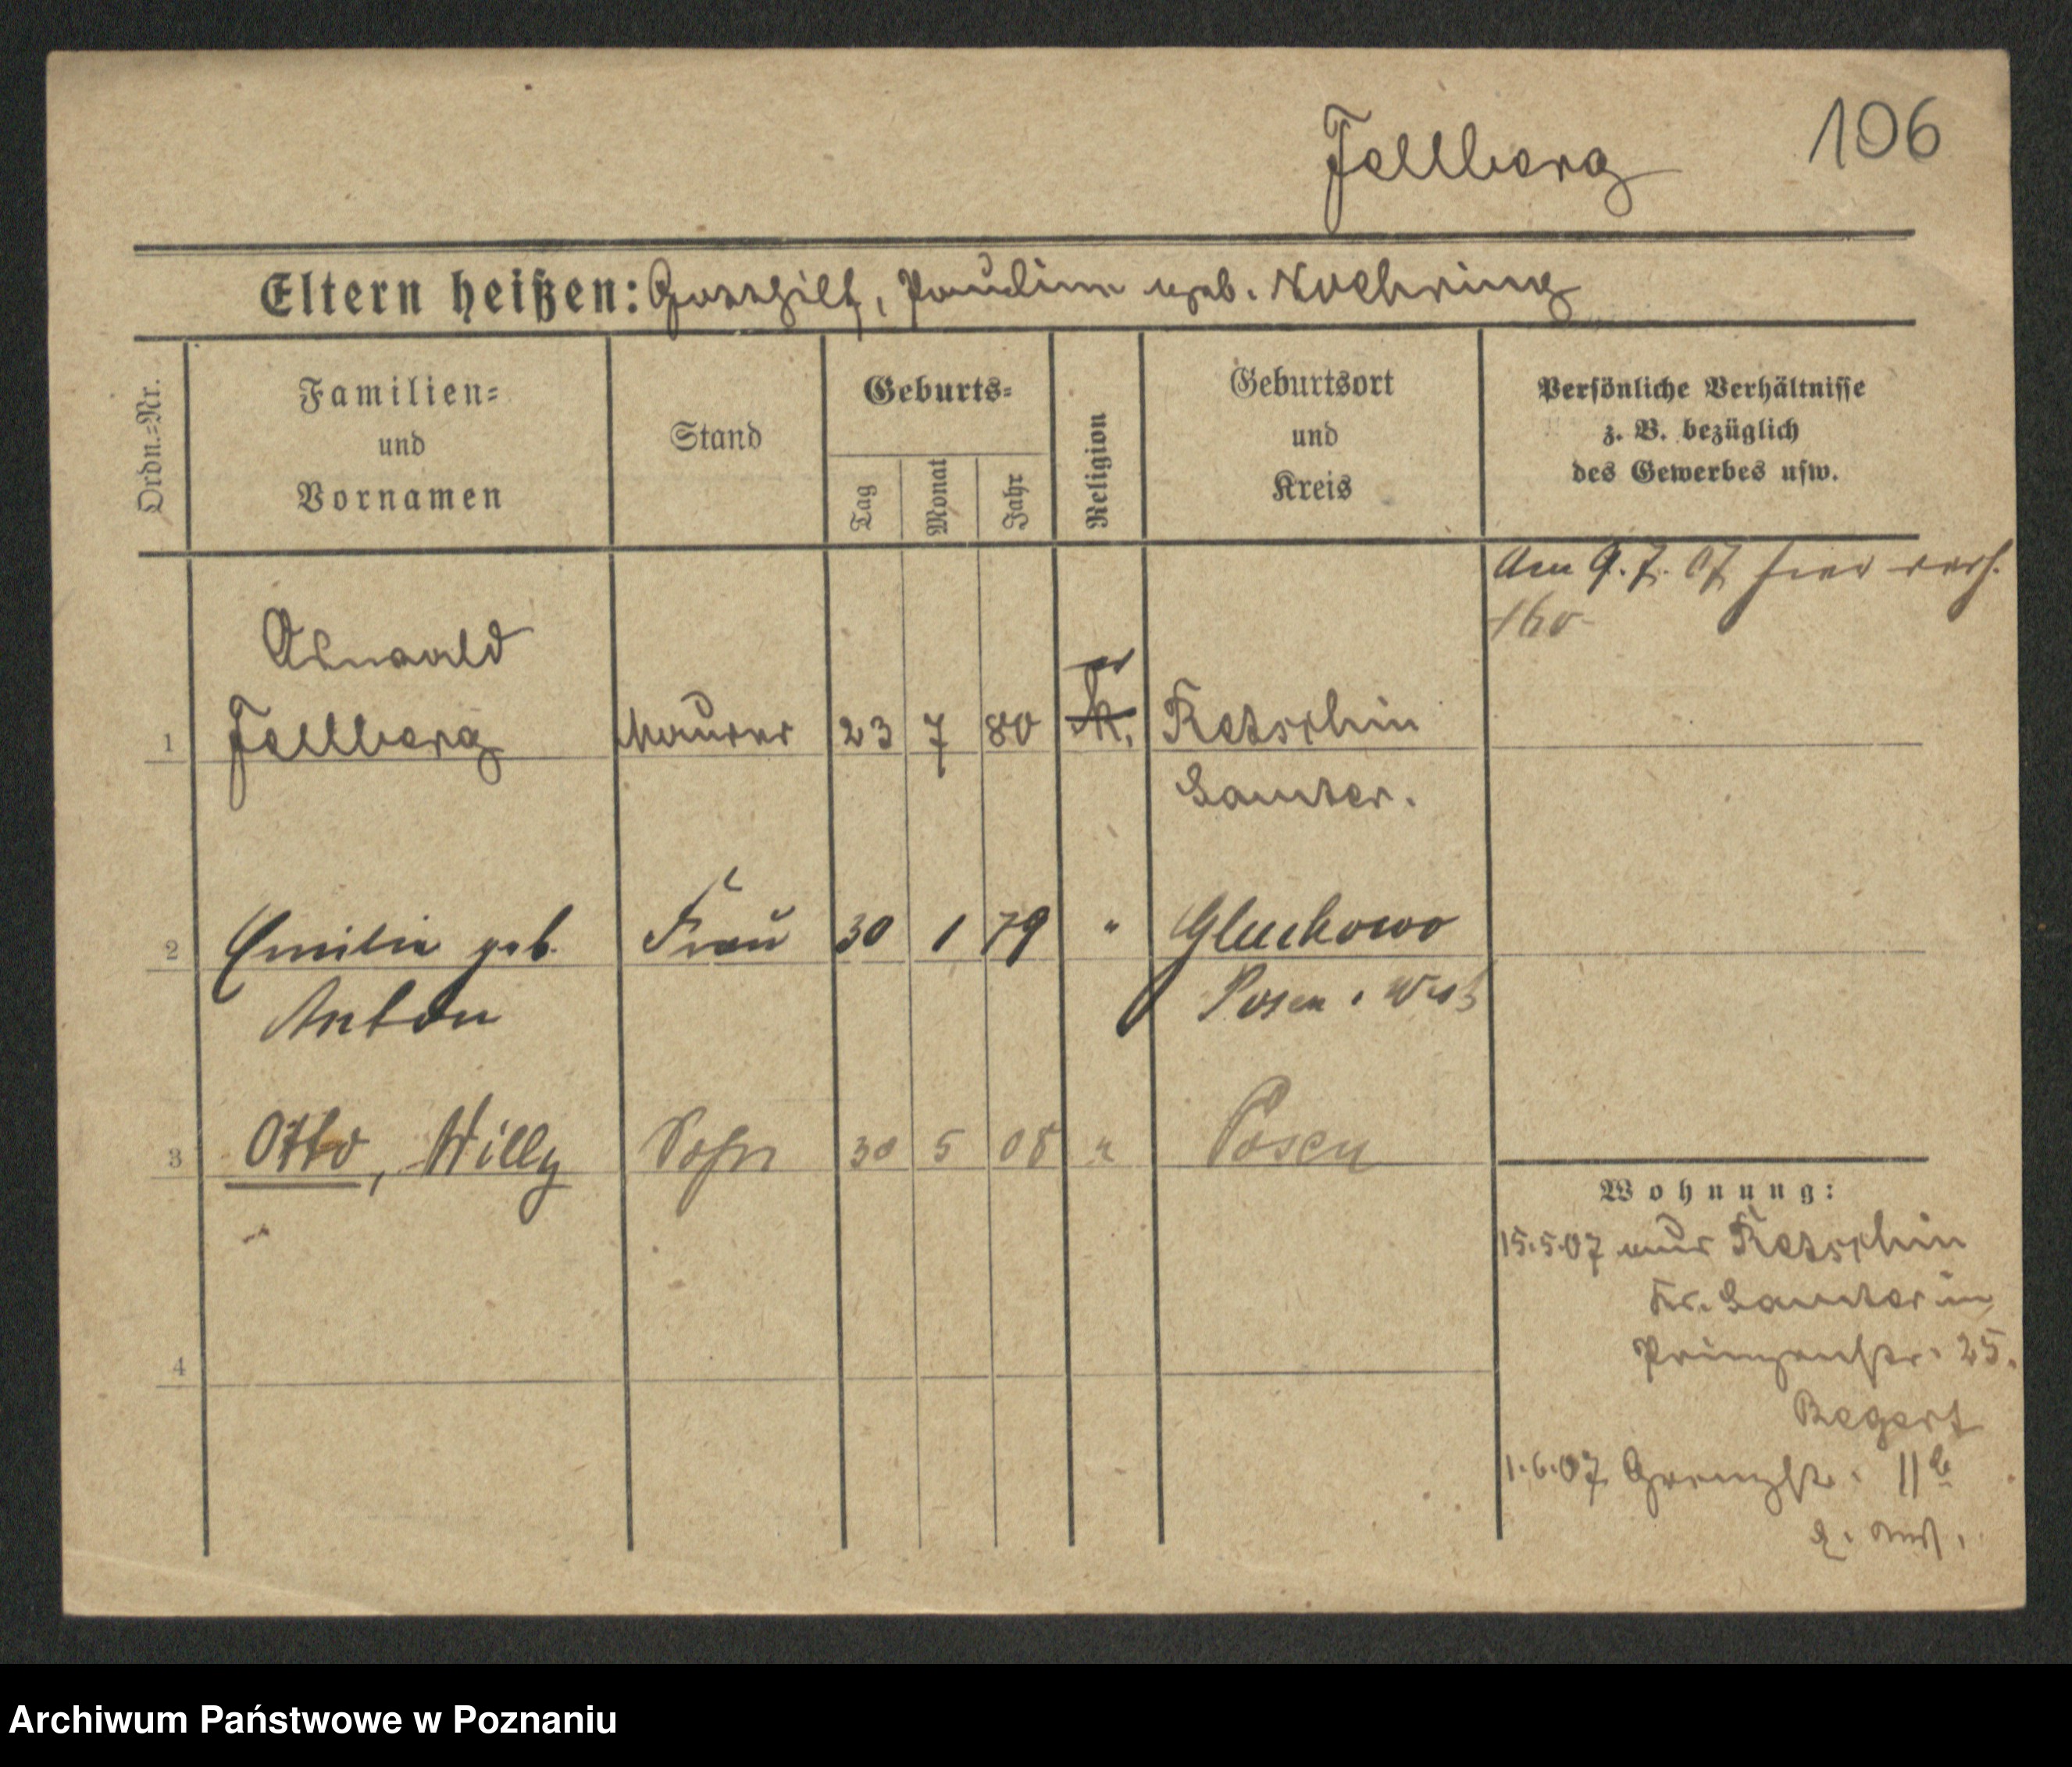 Fellberg 106
Eltern heißen: Gotthilf, Pauline geb. Noehring
Ordn.=Nr.
Familien=
und
Vornamen
Stand
Geburts=
Tag
Monat
Jahr
Religion
Geburtsort
und
Kreis
Persönliche Verhältnisse
z. B. bezüglich
des Gewerbes usw.
Am 9.7.07 hier verh.
Oswald
ev
1 Fellberg Maurer 23 7 80 k. Retschin
Samter.
2 Emilie geb. Frau 30 1 79 " Gluchowo
Anton Posen West
3 Otto, Willy Sohn 30 5 08 " Posen
Wohnung:
15.5.07 aus Retschin
Kr. Samter in
Prinzenstr. 25.
Begert
4
1.6.07 Grenzstr. 11b